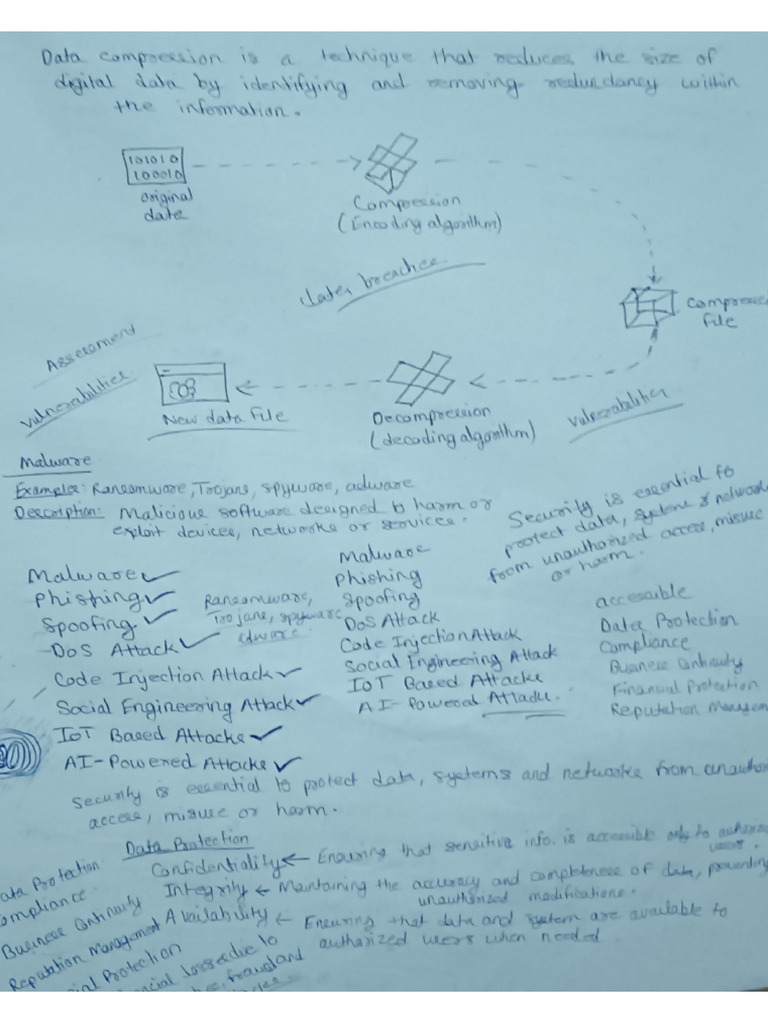 Data compression is a technique that reduces the size of
digital data by identifying and removing redundancy within
the information.
101010
100010
original
data
Compression
(Encoding algorithm)
data breaches
Compressed
File
Assessment
vulnerabilities
New data File
Decompression
(decoding algorithm)
vulnerabilities
Malware
Examples: Ransomware, Trojans, spyware, adware
Description: Malicious software designed to harm or
exploit devices, networks or services.
Security is essential to
protect data, systems & network
from unauthorized access, misuse
or harm.
Malware ✓
Phishing ✓
Spoofing. ✓
DoS Attack ✓
Code Injection Attack ✓
Social Engineering Attack ✓
IoT Based Attacks ✓
AI-Powered Attacks ✓
Ransomware,
Trojans, spyware
adware
Malware
Phishing
Spoofing
DoS Attack
Code Injection Attack
Social Engineering Attack
IoT Based Attacks
AI-Powered Attacks.
accessible
Data Protection
Compliance
Business Continuity
Financial Protection
Reputation Managem
security is essential to protect data, systems and networks from unauthor
access, misuse or harm.
Data Protection
Confidentiality ← Ensuring that sensitive info. is accessible only to authorized
users.
Integrity ← Maintaining the accuracy and completeness of data, preventing
unauthorized modifications.
Availability ← Ensuring that data and system are available to
authorized users when needed
ata Protection
ompliance
Business Continuity
Reputation Management
ial Protection
ncial losses due to
fraud and